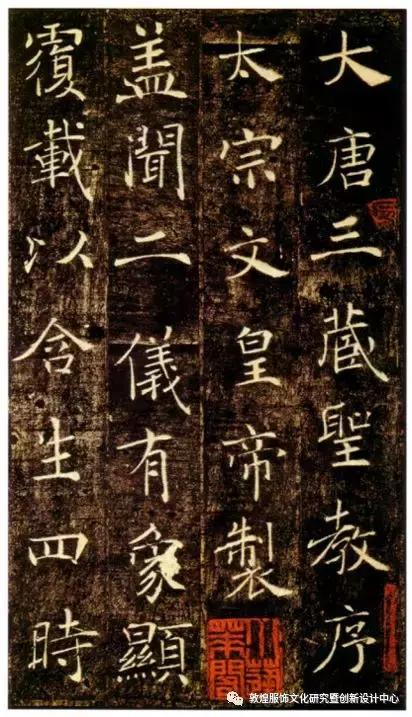 大唐三藏聖教序
太宗文皇帝製
盖聞二儀有象顯
覆載以含生四時
敦煌服饰文化研究暨创新设计中心